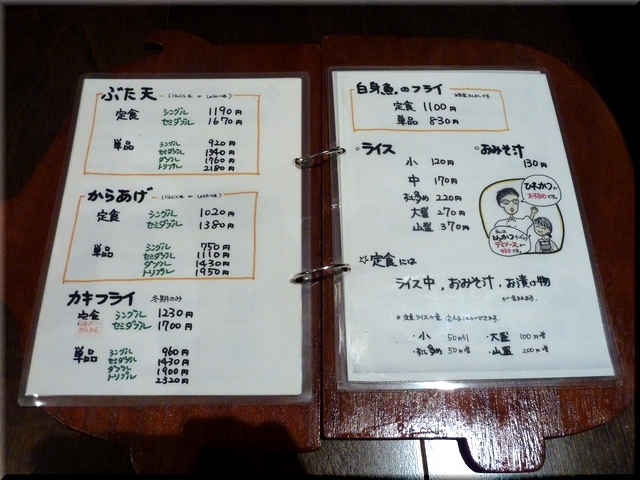 ぶた天
定食 シングル 1190円
セミダブル 1670円
単品 シングル 920円
セミダブル 1340円
ダブル 1760円
トリプル 2180円
からあげ
定食 シングル 1020円
セミダブル 1380円
単品 シングル 750円
セミダブル 1110円
ダブル 1430円
トリプル 1950円
カキフライ 冬期のみ
定食 シングル 1230円
セミダブル 1700円
単品 シングル 960円
セミダブル 1430円
ダブル 1900円
トリプル 2320円
白身魚のフライ
定食 1100円
単品 830円
ライス
小 120円
中 170円
少し多め 220円
大盛 270円
山盛 370円
おみそ汁
130円
ひれかつも
おすすめです。
デミソースが
☆定食には
ライス中、おみそ汁、お漬け物
が含まれます。
※定食ライスの量 変えることができます。
・小 50円引 ・大盛 100円増
・少し多め 50円増 ・山盛 200円増